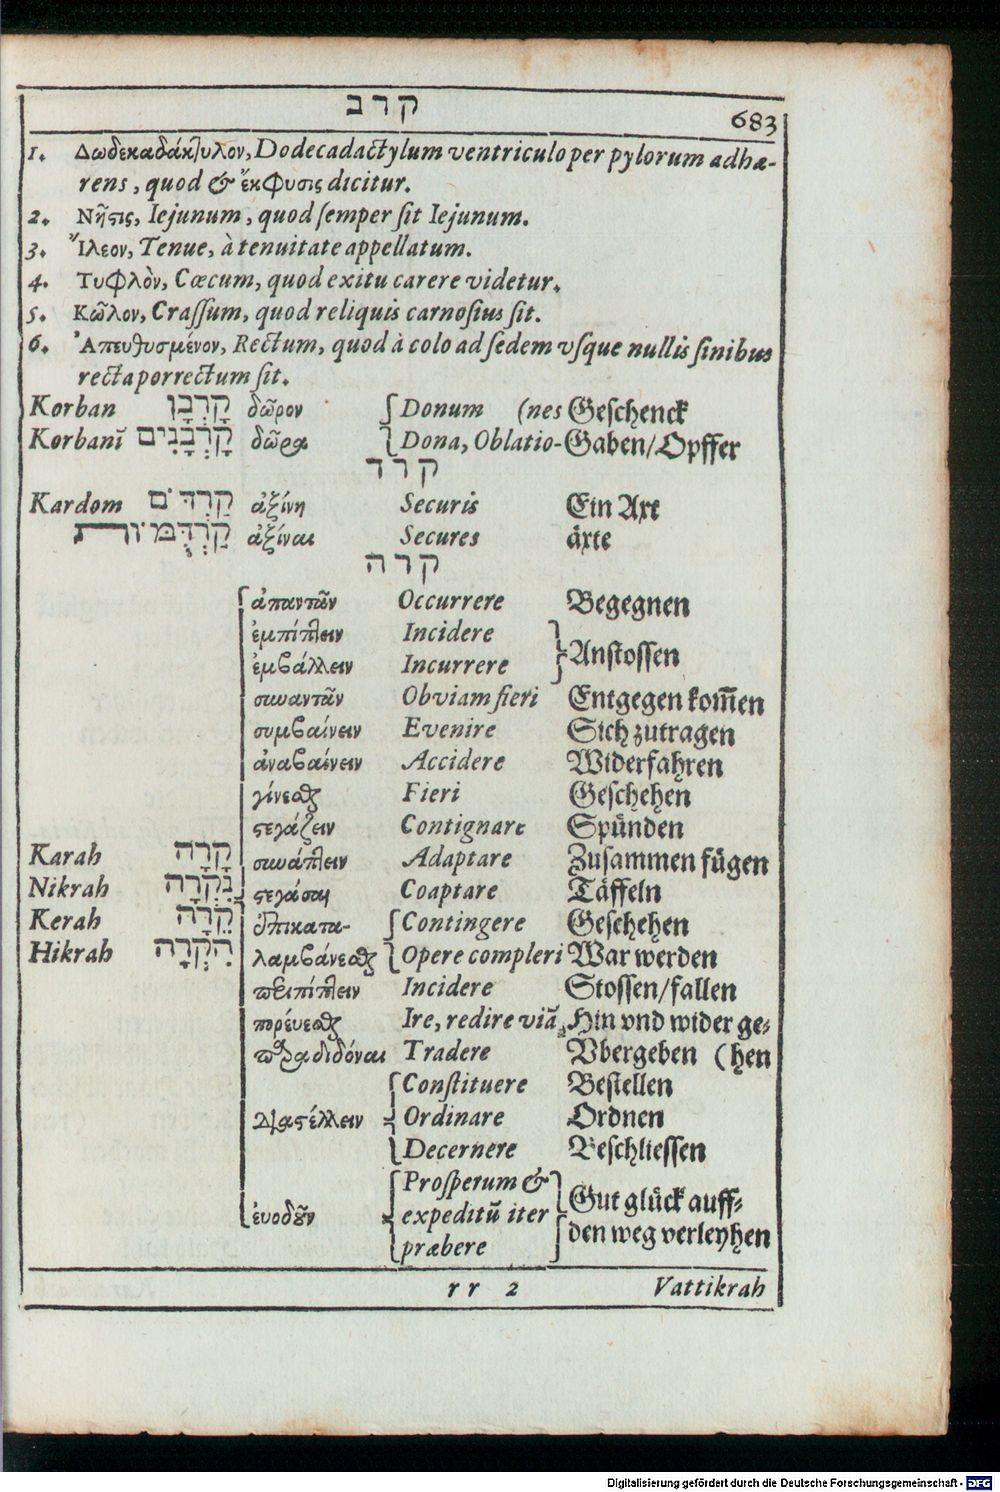 קרב 683
1. Δωδεκαδάκτυλον, Dodecadactylum ventriculo per pylorum adhæ-
rens, quod & ἔκφυσις dicitur.
2. Νῆστις, Iejunum, quod semper sit Iejunum.
3. Ἴλεον, Tenue, à tenuitate appellatum.
4. Τυφλὸν, Cœcum, quod exitu carere videtur.
5. Κῶλον, Crassum, quod reliquis carnosius sit.
6. Ἀπευθυσμένον, Rectum, quod à colo ad sedem vsque nullis sinibus
recta porrectum sit.
Korban קָרְבָּן δῶρον Donum (nes Geschenck
Korbanĩ קָרְבָּנִים δῶρα Dona, Oblatio- Gaben/Opffer
קרד
Kardom קַרְדֹּם ἀξίνη Securis Ein Axt
קַרְדֻּמּוֹת ἀξίναι Secures äxte
קרה
ἀπαντᾶν Occurrere Begegnen
ἐμπίπτειν Incidere
ἐμβάλλειν Incurrere Anstossen
συναντᾶν Obviam fieri Entgegen kom̃en
συμβαίνειν Evenire Sich zutragen
ἀναβαίνειν Accidere Widerfahren
γίνεσθαι Fieri Geschehen
στεγάζειν Contignare Spünden
Karah קָרָה συνάπτειν Adaptare Zusammen fügen
Nikrah נִקְרָה στεγάσαι Coaptare Täffeln
Kerah קֵרָה ἐπικατα- Contingere Geschehen
Hikrah הִקְרָה λαμβάνεσθαι Opere compleri War werden
περιπίπτειν Incidere Stossen/fallen
πορεύεσθαι Ire, redire viã Hin vnd wider ge-
παραδιδόναι Tradere Vbergeben (hen
Constituere Bestellen
διαστέλλειν Ordinare Ordnen
Decernere Beschliessen
Prosperum & Gut glück auff-
εὐοδοῦν expeditũ iter
præbere den weg verleyhen
rr 2 Vattikrah
Digitalisierung gefördert durch die Deutsche Forschungsgemeinschaft - DFG